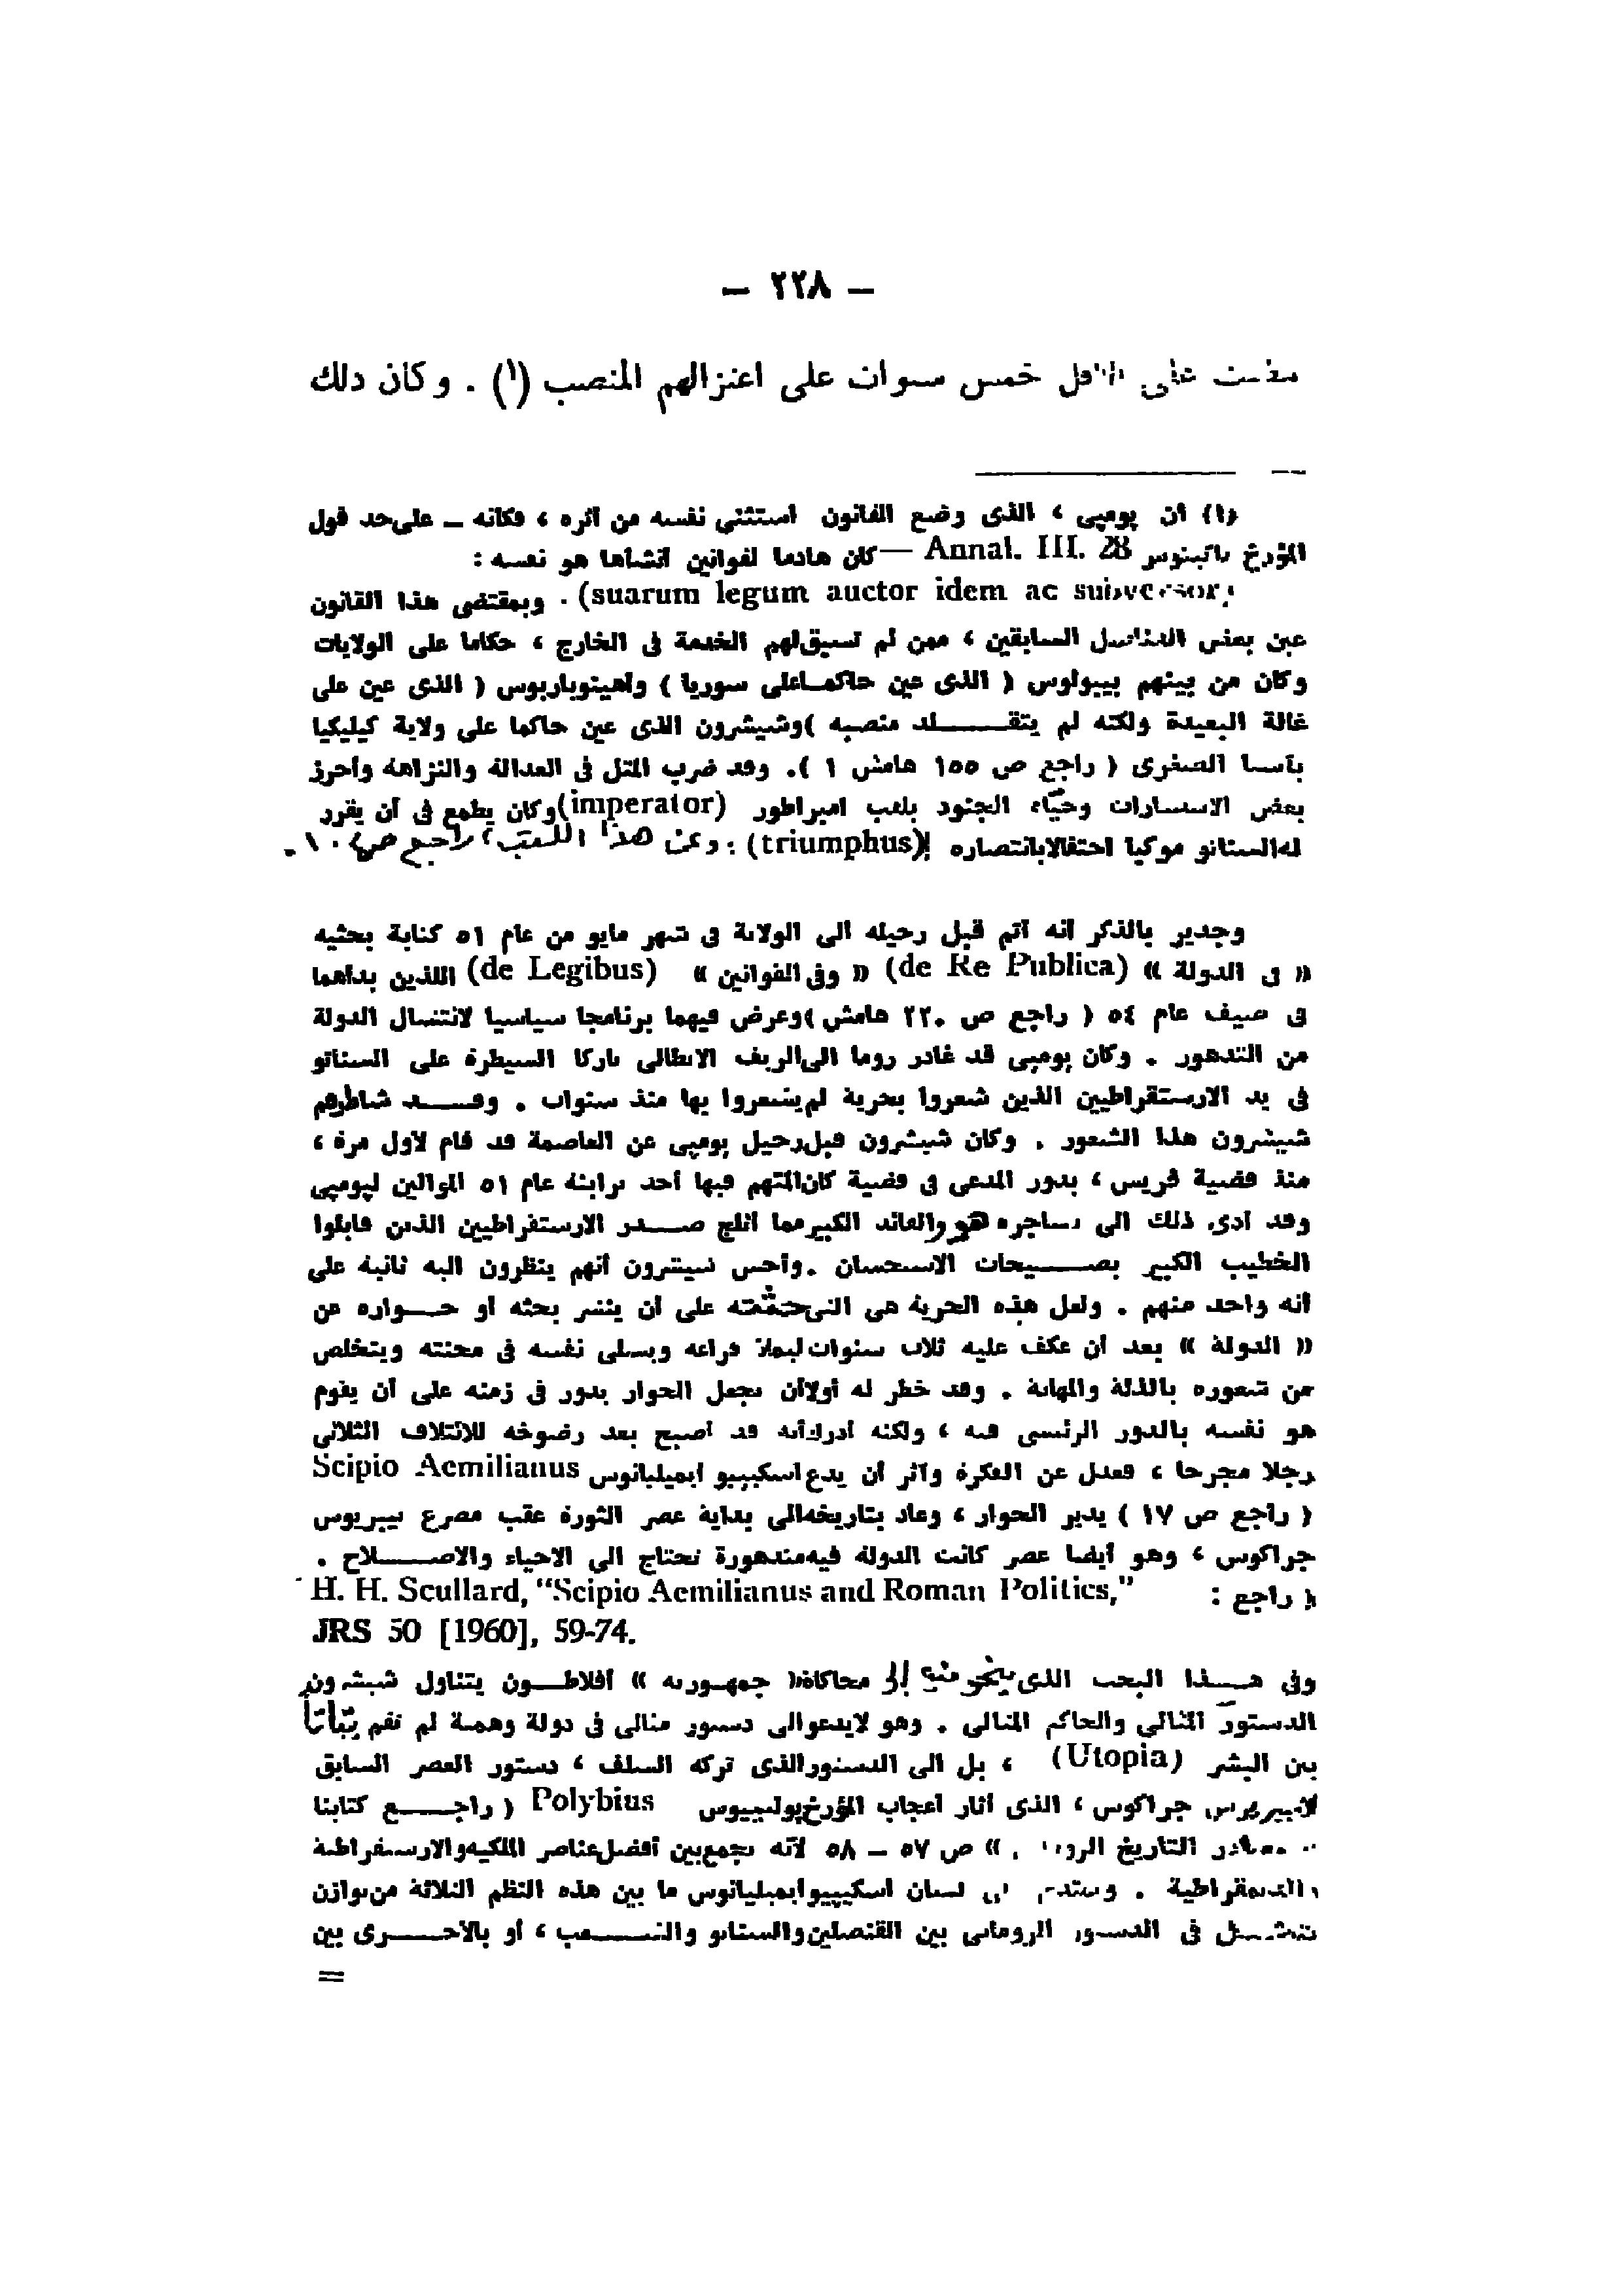 – ٢٢٨ –
خمس سنوات على اعتزالهم المنصب (١) . وكان ذلك
(١) أن پومپى ، الذى وضع القانون استثنى نفسه من أثره ، فكانه – على حد قول
المؤرخ تاكيتوس Annal. III. 28 — كان هادما لقوانين أنشأها هو نفسه :
(suarum legum auctor idem ac subversor) . وبمقتضى هذا القانون
عين بعض القناصل السابقين ، ممن لم تسبق لهم الخدمة فى الخارج ، حكاما على الولايات
وكان من بينهم بيبولوس ( الذى عين حاكمـا على سوريا ) وأهينوباربوس ( الذى عين على
غالة البعيدة ولكنه لم يتقـــلد منصبه ) وشيشرون الذى عين حاكما على ولاية كيليكيا
بآسيا الصغرى ( راجع ص ١٥٥ هامش ١ ). وقد ضرب المثل فى العدالة والنزاهة وأحرز
بعض الانتصارات وحيّاه الجنود بلقب امبراطور (imperator) وكان يطمع فى أن يقرر
له السناتو موكبا احتفالا بانتصاره (triumphus) . وعن هذا اللقب ، راجع ص
وجدير بالذكر أنه أتم قبل رحيله الى الولاية فى شهر مايو من عام ٥١ كتابة بحثيه
« فى الدولة » (de Re Publica) « وفى القوانين » (de Legibus) اللذين بدأهما
فى صيف عام ٥٤ ( راجع ص ٢٢٠ هامش ) وعرض فيهما برنامجا سياسيا لانتشال الدولة
من التدهور . وكان پومپى قد غادر روما الى الريف الايطالى تاركا السيطرة على السناتو
فى يد الارستقراطيين الذين شعروا بحرية لم يشعروا بها منذ سنوات . وقـــد شاطرهم
شيشرون هذا الشعور . وكان شيشرون قبل رحيل پومپى عن العاصمة قد قام لأول مرة ،
منذ قضية فريس ، بدور المدعى فى قضية كان المتهم فيها أحد ترابنة عام ٥١ الموالين لپومپى
وقد أدى ذلك الى مشاجرة هو والقائد الكبير مما أثلج صـــدر الارستقراطيين الذين قابلوا
الخطيب الكبير بصـــيحات الاستحسان . وأحس شيشرون أنهم ينظرون اليه ثانية على
أنه واحد منهم . ولعل هذه الحرية هى التى حثّته على أن ينشر بحثه أو حـــواره عن
« الدولة » بعد أن عكف عليه ثلاث سنوات ليملأ فراغه ويسلى نفسه فى محنته ويتخلص
من شعوره بالذلة والمهانة . وقد خطر له أولا أن يجعل الحوار يدور فى زمنه على أن يقوم
هو نفسه بالدور الرئيسى فيه ، ولكنه أدرك أنه قد أصبح بعد رضوخه للائتلاف الثلاثى
رجلا مجرحا ، فعدل عن الفكرة وآثر أن يدع اسكيبيو ايميليانوس Scipio Aemilianus
( راجع ص ١٧ ) يدير الحوار ، وعاد بتاريخه الى بداية عصر الثورة عقب مصرع تيبريوس
جراكوس ، وهو أيضا عصر كانت الدولة فيه متدهورة تحتاج الى الاحياء والاصـــلاح .
( راجع : H. H. Scullard, "Scipio Aemilianus and Roman Politics,"
JRS 50 [1960], 59-74.
وفى هـــذا البحث الذى إلى محاكاة « جمهورية » أفلاطـــون يتناول شيشرون
الدستور المثالى والحاكم المثالى . وهو لا يدعو الى دستور مثالى فى دولة وهمية لم تقم بتاتا
بين البشر (Utopia) ، بل الى الدستور الذى تركه السلف ، دستور العصر السابق
لتيبريوس جراكوس ، الذى أثار اعجاب المؤرخ پوليبيوس Polybius ( راجـــع كتابنا
مصادر التاريخ » ص ٥٧ – ٥٨ لأنه يجمع بين أفضل عناصر الملكية والارستقراطية
والديمقراطية . لسان اسكيبيو ايميليانوس ما بين هذه النظم الثلاثة من توازن
يتمثـــل فى الدستور الرومانى بين القنصلين والسناتو والشـــعب ، أو بالأحـــرى بين
=